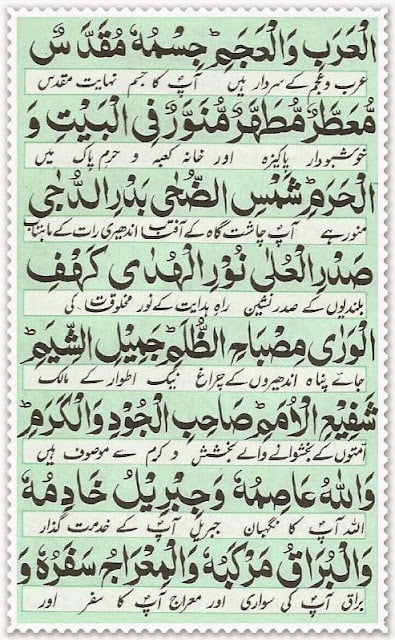 الْعَرَبِ وَالْعَجَمِ ؕ جِسْمُهٗ مُقَدَّسٌ
عرب و عجم کے سردار ہیں آپؐ کا جسم نہایت مقدس
مُّعَطَّرٌ مُّطَهَّرٌ مُّنَوَّرٌ فِی الْبَیْتِ وَ
خوشبودار پاکیزہ اور خانہ کعبہ و حرم پاک میں
الْحَرَمِ ؕ شَمْسِ الضُّحٰی بَدْرِ الدُّجٰی
منور ہے آپؐ چاشت گاہ کے آفتاب اندھیری رات کے ماہتاب
صَدْرِ الْعُلٰی نُوْرِ الْهُدٰی کَهْفِ
بلندیوں کے صدر نشین راہ ہدایت کے نور مخلوقات کی
الْوَرٰی مِصْبَاحِ الظُّلَمِ ؕ جَمِیْلِ الشِّیَمِ ؕ
جائے پناہ اندھیروں کے چراغ نیک اطوار کے مالک
شَفِیْعِ الْاُمَمِ ؕ صَاحِبِ الْجُوْدِ وَالْکَرَمِ ؕ
امتوں کے بخشوانے والے بخشش و کرم سے موصوف ہیں
وَاللّٰهُ عَاصِمُهٗ وَجِبْرِیْلُ خَادِمُهٗ
اللہ آپؐ کا نگہبان جبریلؑ آپؐ کے خدمت گذار
وَالْبُرَاقُ مَرْکَبُهٗ وَالْمِعْرَاجُ سَفَرُهٗ وَ
براق آپؐ کی سواری اور معراج آپؐ کا سفر اور